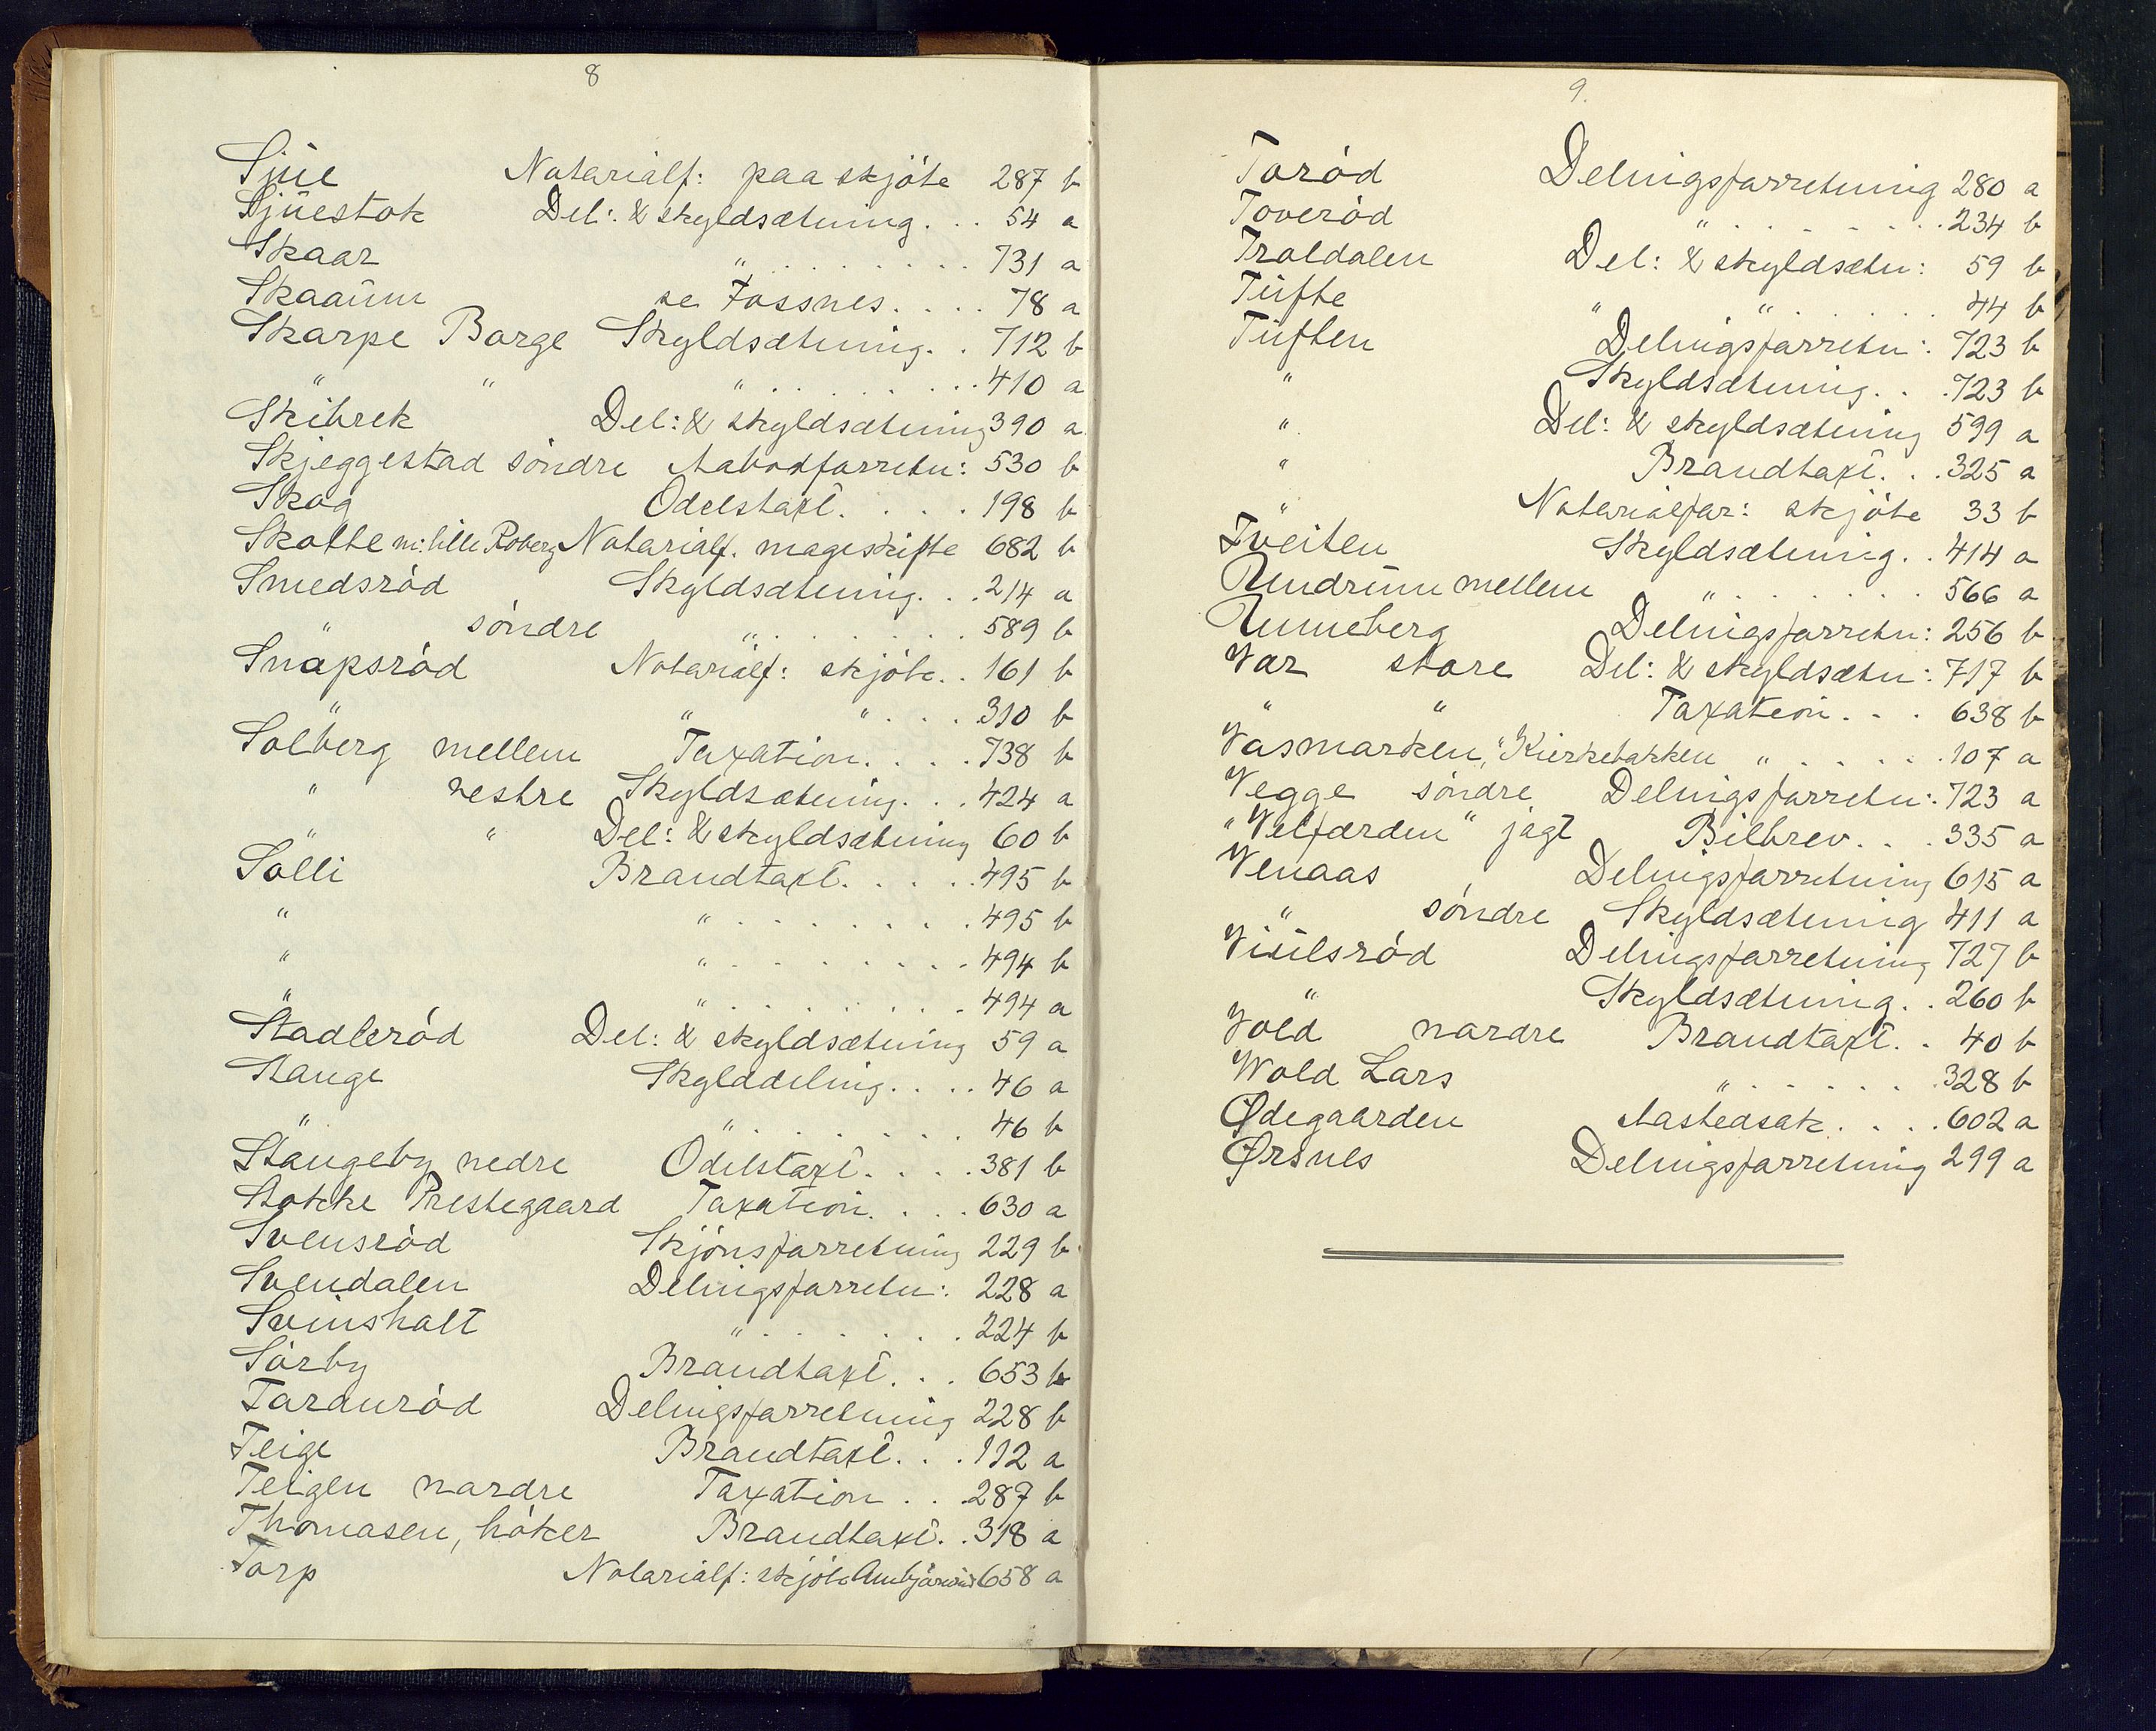 8
Sjue Notarialf: paa skjöte 287 b
Sjuestok Del: & skyldsætning . . . 54 a
Skaar " . . . . . . . . . 731 a
Skaaum se Fossnes . . . . 78 a
Skarpe Borge Skyldsætning . . 712 b
" " " . . . . . . . . . 410 a
Skibrek Del: & skyldsætning 390 a
Skjeggestad söndre Aabodforretn: 530 b
Skog Odelstaxt . . . . 198 b
Skotte m: lille Roberg Notarialf. mageskifte 682 b
Smedsröd Skyldsætning . . . 214 a
" söndre " . . . . . . . . 589 b
Snapsröd Notarialf: skjöte . . 161 b
" " " . . . . 310 b
Solberg mellem Taxation . . . . 738 b
" vestre Skyldsætning . . . 424 a
" " Del: & skyldsætning 60 b
Solli Brandtaxt . . . . . 495 b
" " . . . . . . . . . 495 b
" " . . . . . . . . . 494 b
" " . . . . . . . . . 494 a
Stadleröd Del: & skyldsætning 59 a
Stange Skylddeling . . . . 46 a
" " . . . . . . . 46 b
Stangeby nedre Odelstaxt . . . . 381 b
Stokke Prestegaard Taxation . . . . 630 a
Svensröd Skjönsforretning 229 b
Svendalen Delingsforretn: 228 a
Svinsholt " . . . . . . . 224 b
Sörby Brandtaxt . . . 653 b
Tardnröd Delingsforretning 228 b
Teige Brandtaxt . . . 112 a
Teigen nordre Taxation . . . 287 b
Thomasen, höker Brandtaxt . . 318 a
Torp Notarialf: skjöte 658 a
9.
Toröd Delingsforretning 280 a
Toveröd " . . . . . . . . 234 b
Troldalen Del: & skyldsætn: 59 b
Tufte " " . . . . . . 44 b
Tuften Delingsforretn: 723 b
" Skyldsætning . . . 723 b
" Del: & skyldsætning 599 a
" Brandtaxt . . . 325 a
" Notarialfor: skjöte 33 b
Tveiten Skyldsætning . . 414 a
Undrum mellem " . . . . . . . 566 a
Unneberg Delingsforretn: 256 b
Vær store Del: & skyldsætn: 717 b
" " Taxation . . . 638 b
Vasmarken, "Kirkebakken " . . . . . . 107 a
Vegge söndre Delingsforretn: 723 a
"Velfærden" jagt Bilbrev . . . 335 a
Venaas Delingsforretning 615 a
" söndre Skyldsætning 411 a
Viulsröd Delingsforretning 727 b
" Skyldsætning . . 260 b
Vold nordre Brandtaxt . . 40 b
Wold Lars " . . . . . . . 328 b
Ødegaarden Aastedsak . . . . 602 a
Ørsnes Delingsforretning 299 a